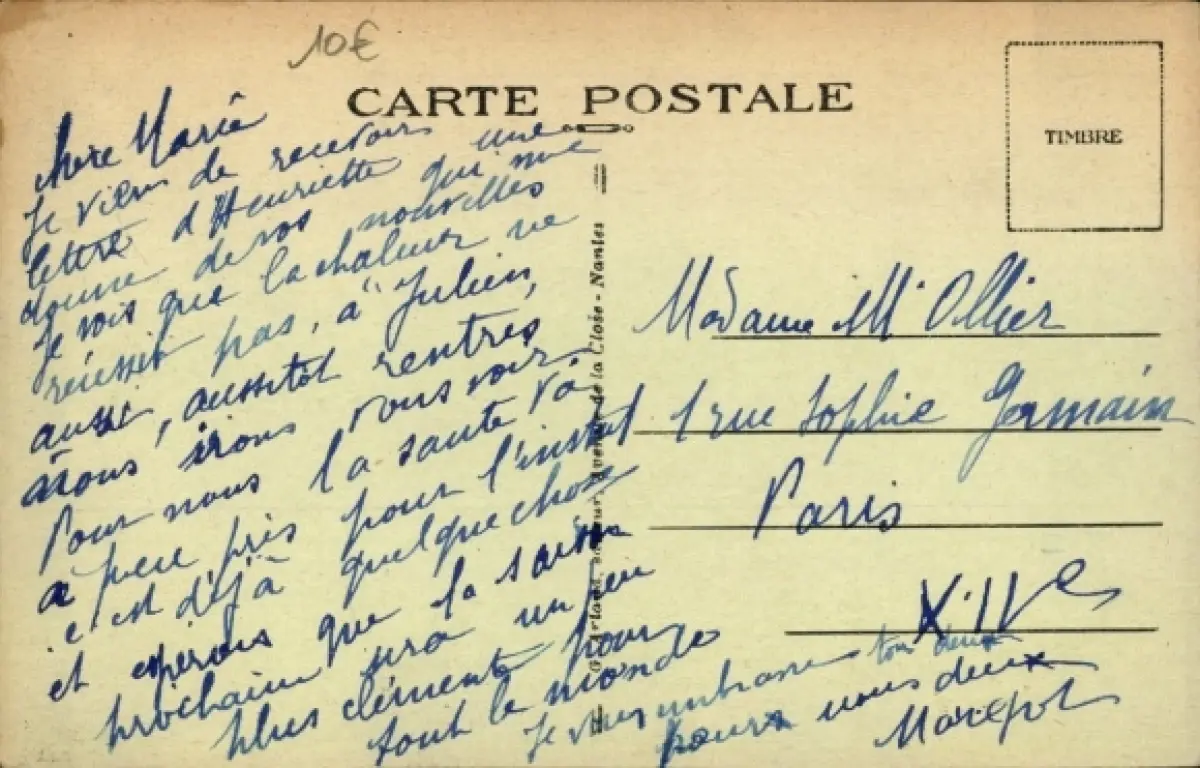 10€
CARTE POSTALE
TIMBRE
chère Marie
Je viens de recevoir une
lettre d'Henriette qui me
donne de vos nouvelles
Je vois que la chaleur ne
réussit pas, à Julien,
aussi, aussitôt rentrés
nous irons vous voir.
Pour nous la santé va
à peu près pour l'instant
c'est déjà quelque chose
et espérons que la saison
prochaine sera un peu
plus clémente pour
tout le monde
Je vous embrasse tous deux
pour nous deux
Margot
Madame M Ollier
1 rue Sophie Germain
Paris
XIVe
de la Close - Nantes